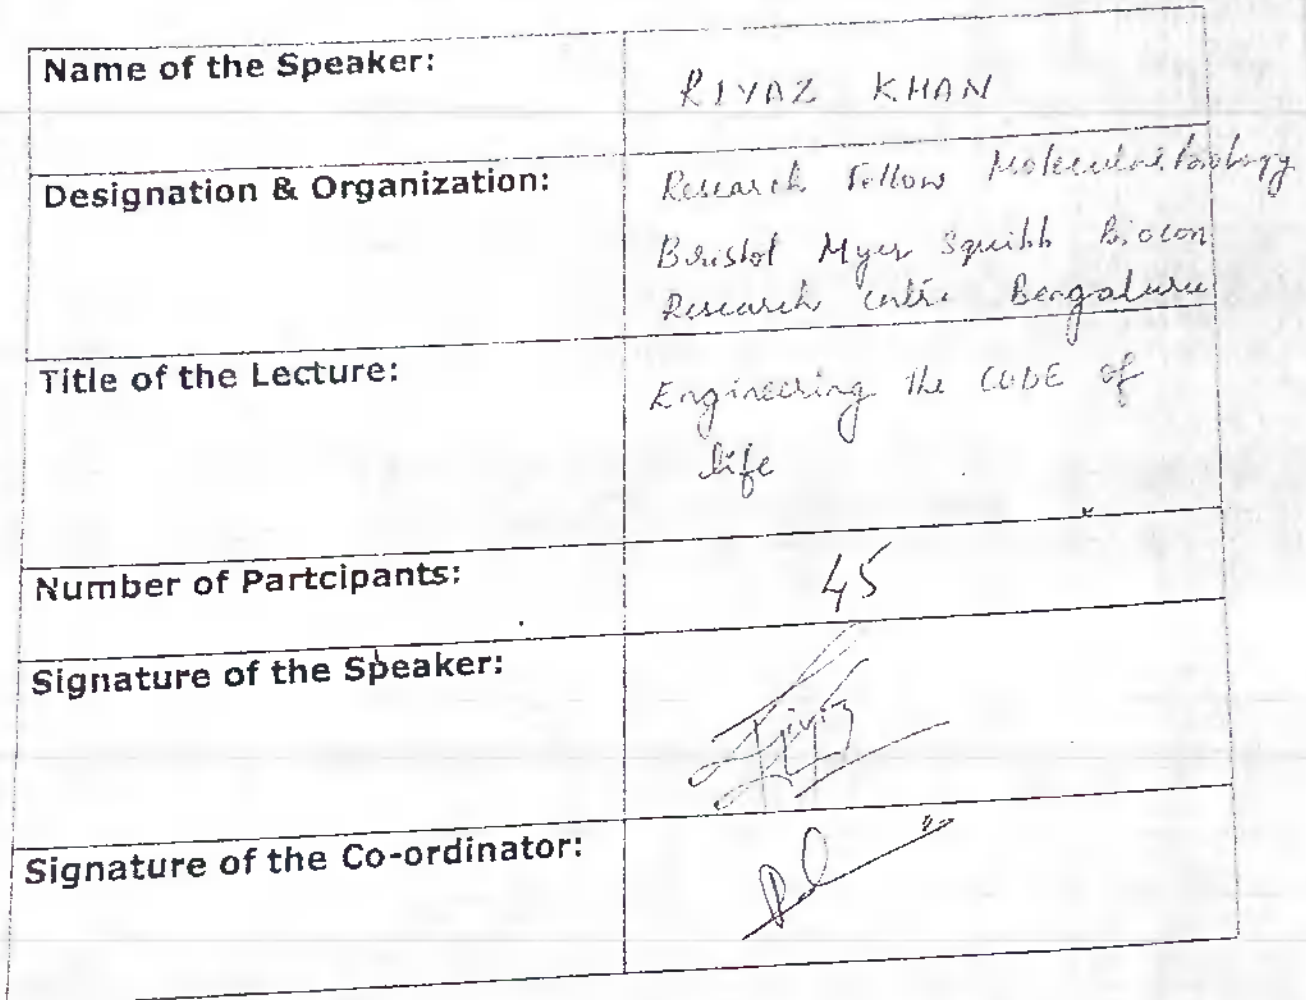 Name of the Speaker:
RIYAZ KHAN
Designation & Organization:
Research Fellow Molecular Biology
Bristol Myer Squibb Biocon
Research Centre Bengaluru
Title of the Lecture:
Engineering the CODE of
life
Number of Partcipants:
45
Signature of the Speaker:
Signature of the Co-ordinator: